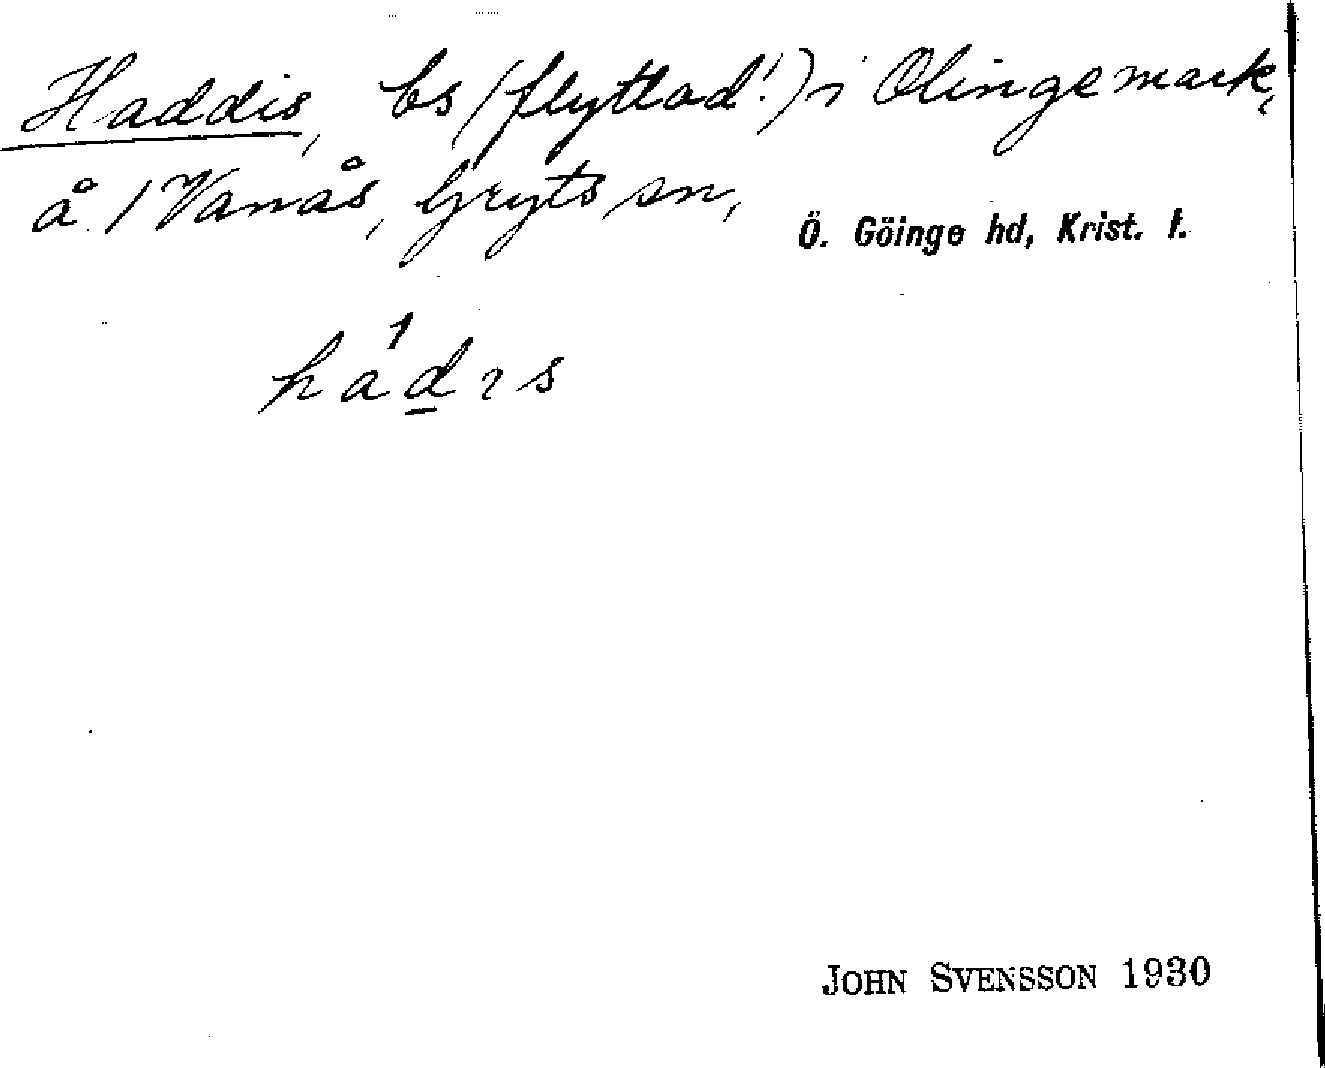 Haddis, bs (flyttad!) i Olingemark,
å 1 Vanås, Gryts sn, Ö. Göinge hd, Krist. l.
hád̲ıs
JOHN SVENSSON 1930